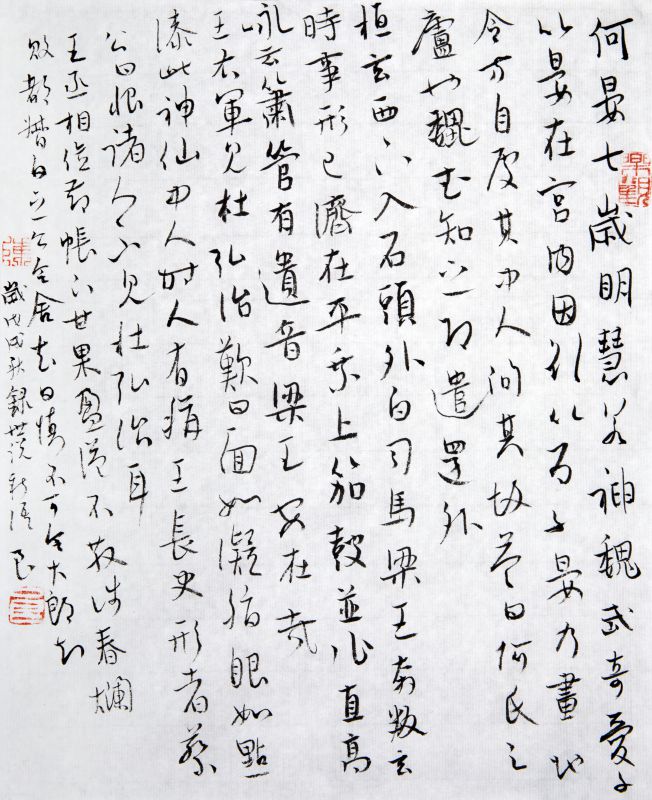 何晏七歲明慧若神魏武奇愛之
以晏在宮內因欲以為子晏乃畫地
令方自處其中人問其故答曰何氏之
廬也魏武知之即遣還外
桓玄西下入石頭外白司馬梁王奔叛玄
時事形已濟在平乘上笳鼓並作直高
詠云簫管有遺音梁王安在哉
王右軍見杜弘治歎曰面如凝脂眼如點
漆此神仙中人時人有稱王長史形者蔡
公曰恨諸人不見杜弘治耳
王丞相儉節帳下甘果盈溢不散涉春爛
敗都督白之公令舍去曰慎不可令大郎知
歲戊戌秋錄世說新語